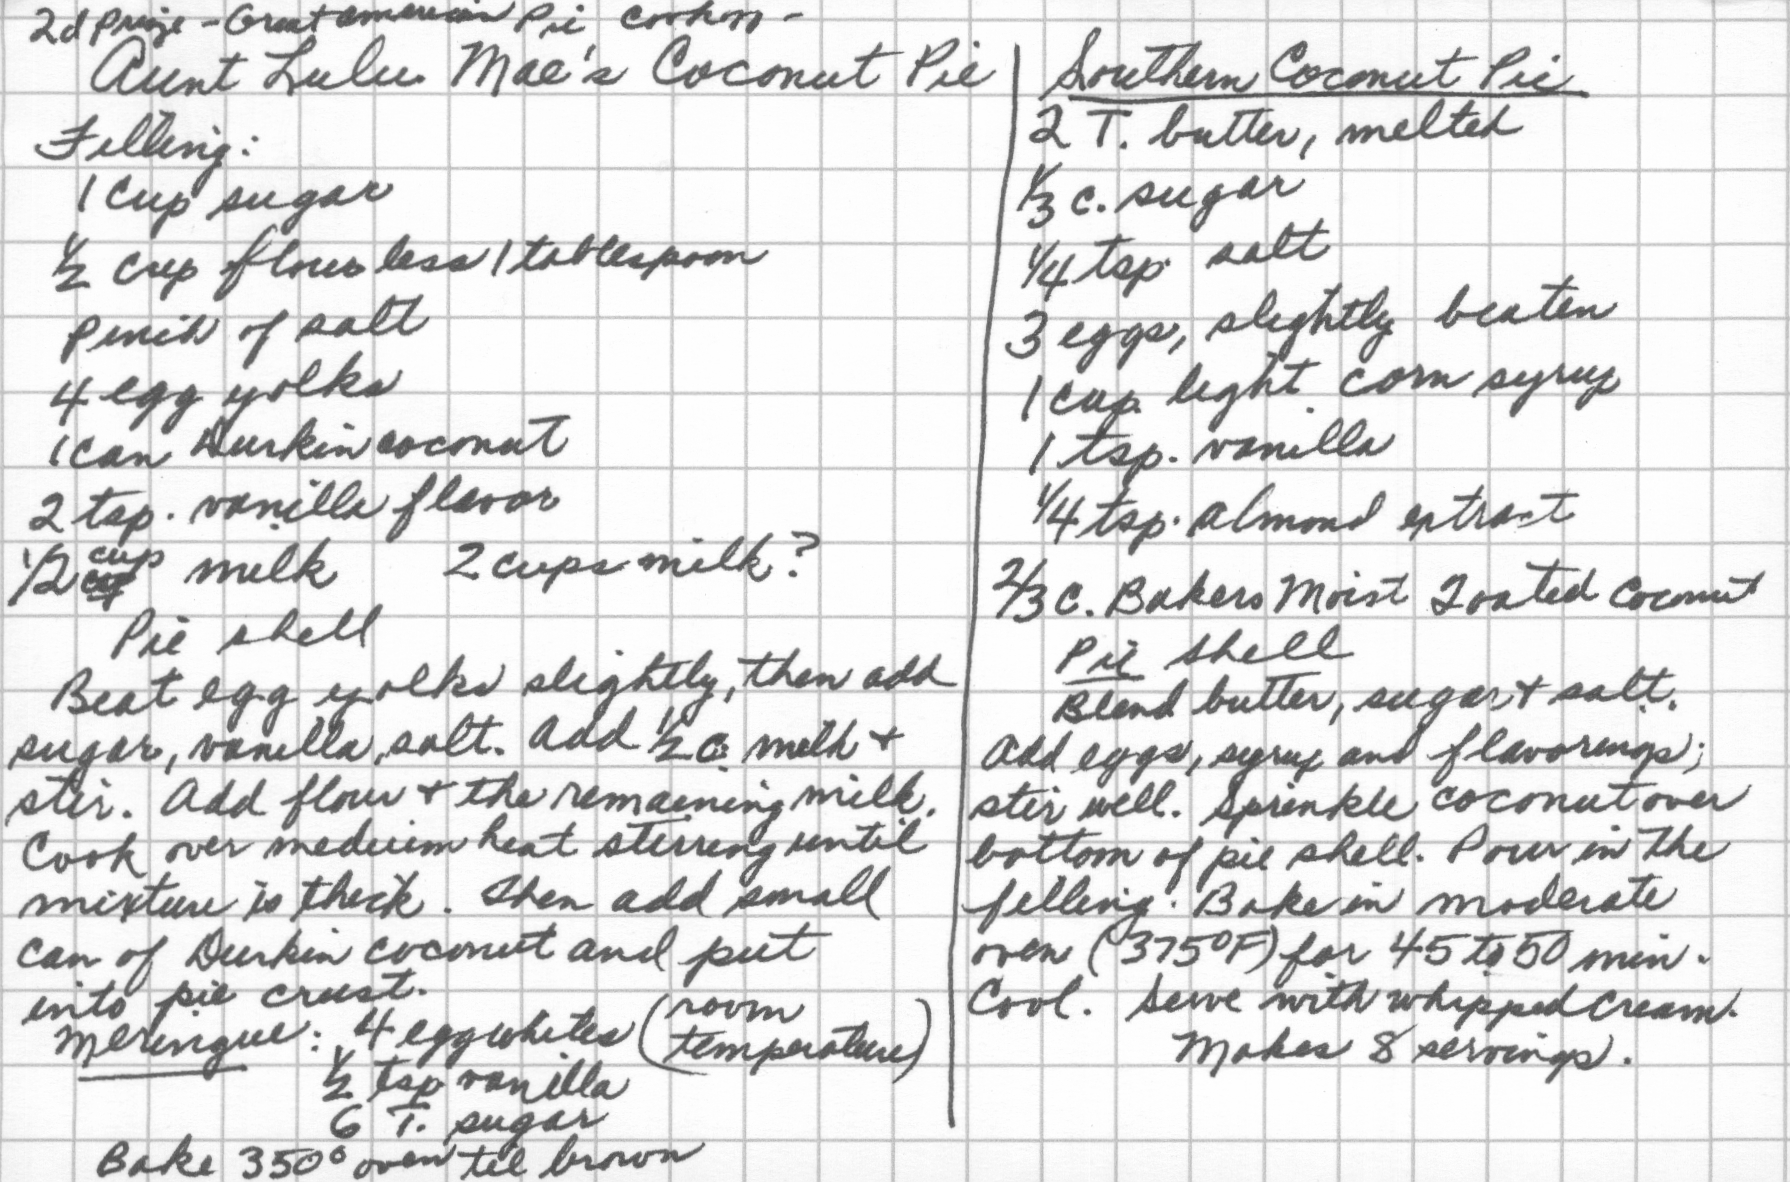 2d Prize - Great american Pie cookoff -
Aunt Lulu Mae's Coconut Pie
Filling:
1 cup sugar
1/2 cup flour less 1 tablespoon
Pinch of salt
4 egg yolks
1 can Durkin coconut
2 tsp. vanilla flavor
1/2 cup milk 2 cups milk?
Pie shell
Beat egg yolks slightly, then add
sugar, vanilla, salt. Add 1/2 c. milk +
stir. Add flour + the remaining milk.
Cook over medium heat stirring until
mixture is thick. Then add small
can of Durkin coconut and put
into pie crust.
Meringue: 4 egg whites (room temperature)
1/2 tsp vanilla
6 T. sugar
Bake 350° oven til brown
Southern Coconut Pie
2 T. butter, melted
1/3 c. sugar
1/4 tsp. salt
3 eggs, slightly beaten
1 cup light corn syrup
1 tsp. vanilla
1/4 tsp. almond extract
2/3 c. Bakers Moist Toated Coconut
Pie shell
Blend butter, sugar + salt.
Add eggs, syrup and flavorings;
stir well. Sprinkle coconut over
bottom of pie shell. Pour in the
filling. Bake in moderate
oven (375°F) for 45 to 50 min.
Cool. Serve with whipped cream.
Makes 8 servings.